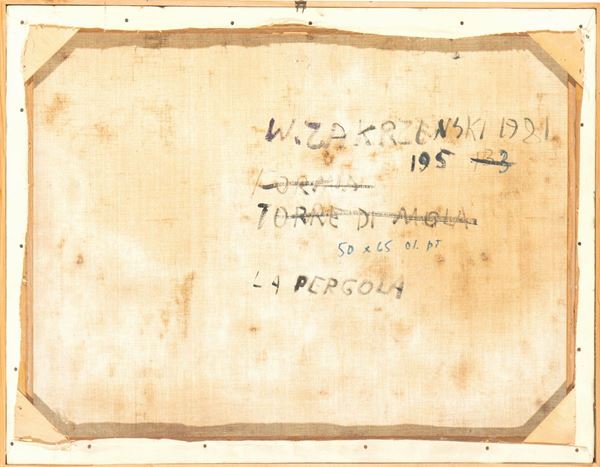 W. ZAKRZEWSKI 1981
195 133
FORMIA
TORRE DI MOLA
50 x 65 ol. pt
LA PERGOLA